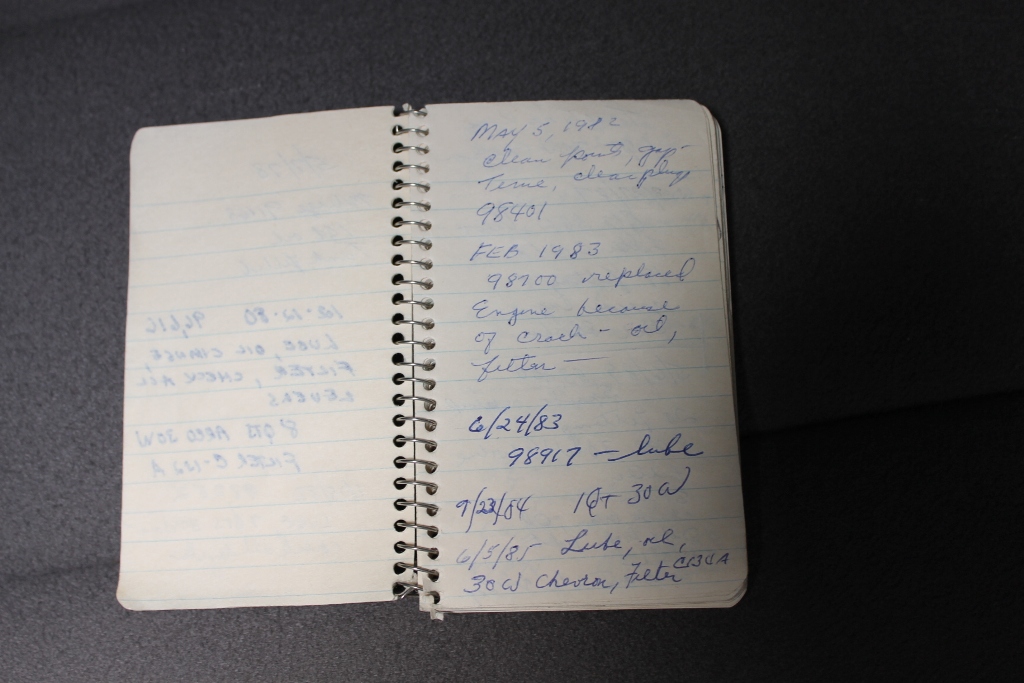 MAY 5, 1982
clean points, gap-
Time, clean plugs
98401
FEB 1983
98700 replaced
Engine because
of crack - oil,
filter —
6/24/83
98917 — lube
9/23/84 1QT 30W
6/5/85 Lube, oil,
30W Chevron, Filter C134A
12-12-80 96,616
LUBE, OIL CHANGE
FILTER, CHECK ALL
LEVELS
8 QTS ARCO 30W
FILTER C-122 A